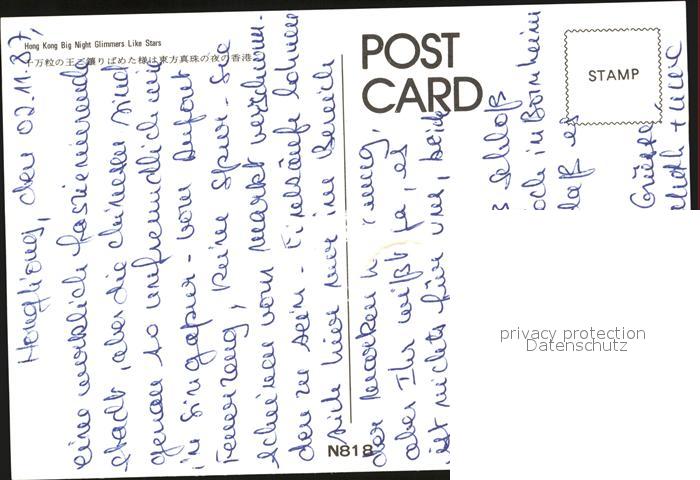 Hong Kong Big Night Glimmers Like Stars
千万粒の王こ鏤りばめた様は東方真珠の夜の香港
POST
CARD
STAMP
N818
Hongkong, den 02.11.87,
eine wirklich faszinierende
Stadt, aber die Chinesen sind
genau so unfreundlich wie
in Singapur - vom
Feuerzeug, keine Spur. Sie
scheinen vom Markt verschwun-
den zu sein. Einkäufe lohnen
sich hier nur im Bereich
der Marken
aber Ihr wißt ja, es
ist nichts für uns, beide
Schloß
och in Bornheim
daß es
Grüsse,
privacy protection
Datenschutz